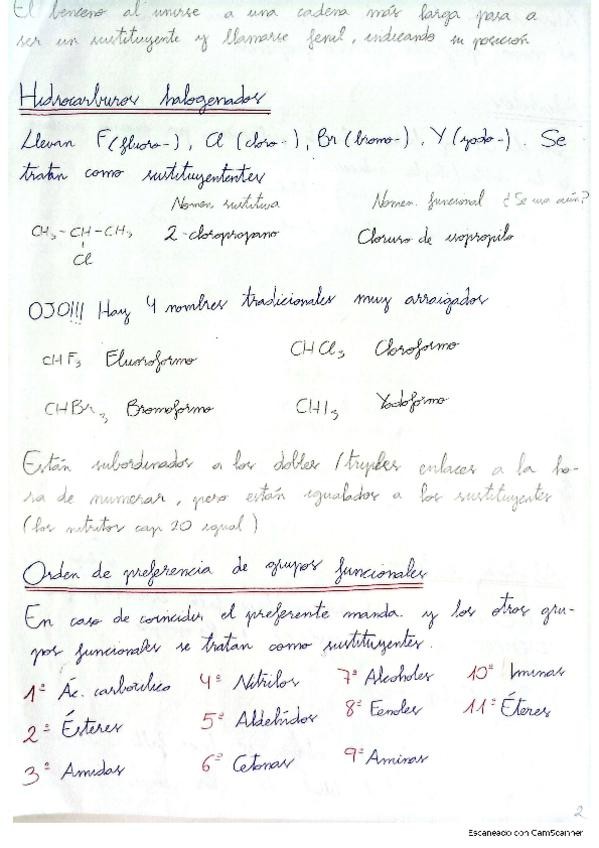 El benceno al unirse a una cadena más larga pasa a
ser un sustituyente y llamarse fenil, indicando su posición
Hidrocarburos halogenados
Llevan F (fluoro-), Cl (cloro-), Br (bromo-), Y (yodo-). Se
tratan como sustituyententes
Nomen. sustitutiva Nomen. funcional ¿Se usa aún?
CH3-CH-CH3 2-cloropropano Cloruro de isopropilo
Cl
OJO!!! Hay 4 nombres tradicionales muy arraigados
CHF3 Fluoroformo CHCl3 Cloroformo
CHBr3 Bromoformo CHI3 Yodoformo
Están subordinados a los dobles/triples enlaces a la ho-
ra de numerar, pero están igualados a los sustituyentes
(los nitritos cap 20 igual)
Orden de preferencia de grupos funcionales
En caso de coincidir el preferente manda y los otros gru-
pos funcionales se tratan como sustituyentes.
1º Ác. carboxílico 4º Nitrilos 7º Alcoholes 10º Iminas
2º Ésteres 5º Aldehídos 8º Fenoles 11º Éteres
3º Amidas 6º Cetonas 9º Aminas
2
Escaneado con CamScanner